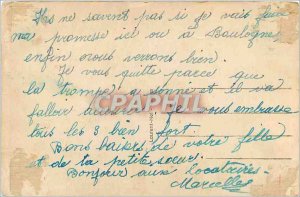 Ils ne savent pas si je vais faire
ma promesse ici ou à Boulogne
enfin nous verrons bien.
Je vous quitte parce que
la trompe a sonné et il va
falloir vous embrasse
tous les 3 bien fort
Bons baisers de votre fille
et de la petite sœur.
Bonjour aux locataires.
Marcelle